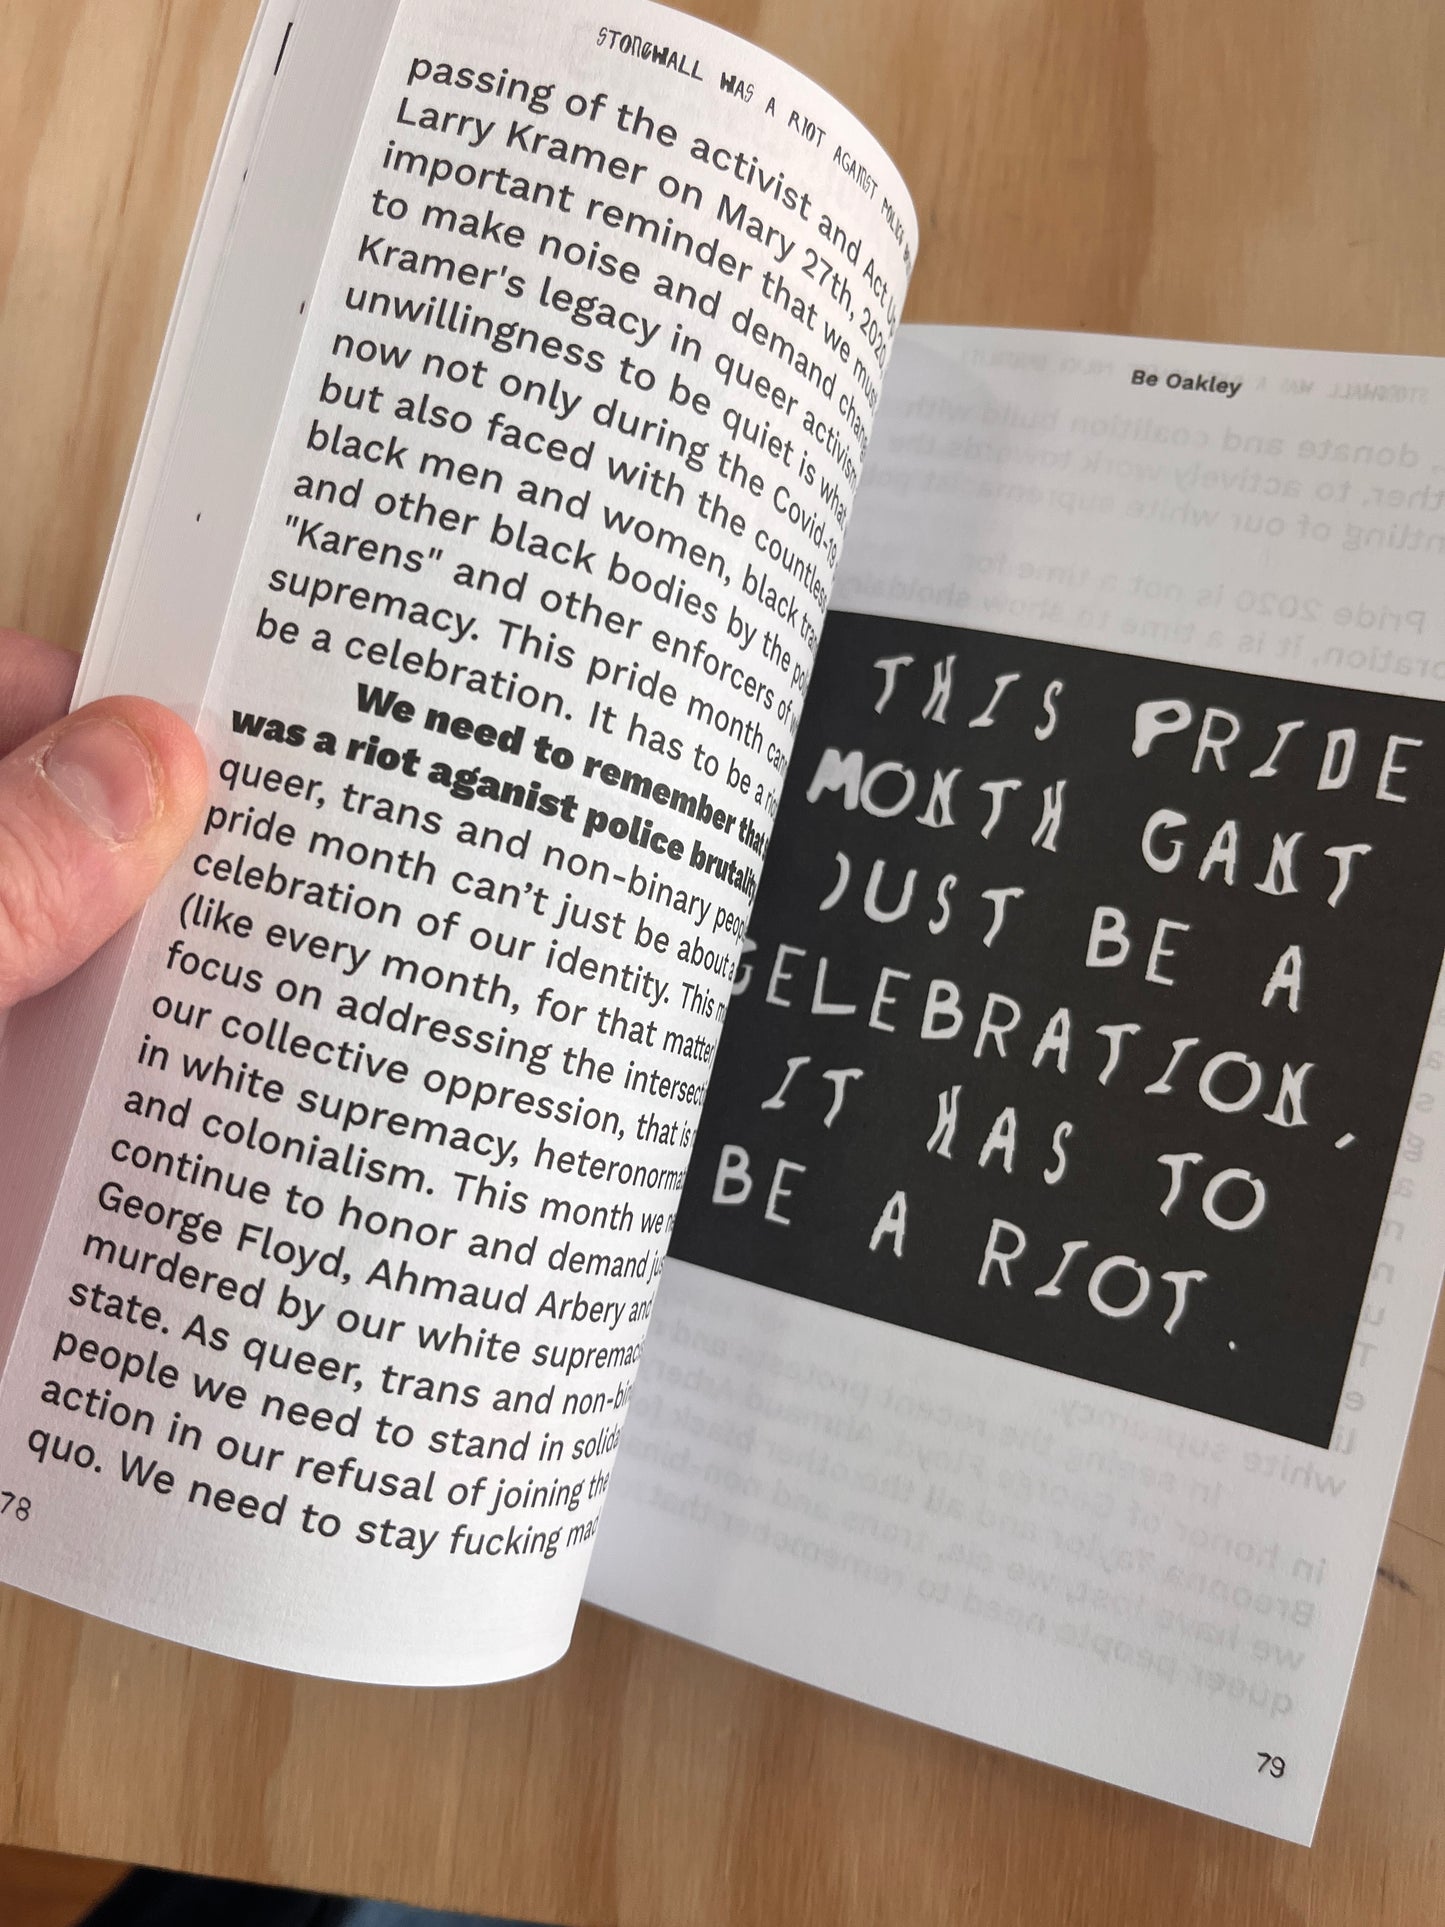 STONEWALL WAS A RIOT AGAINST POLICE
passing of the activist and Act Up
Larry Kramer on Mary 27th, 2020
important reminder that we must
to make noise and demand change
Kramer's legacy in queer activism
unwillingness to be quiet is what
now not only during the Covid-19
but also faced with the countless
black men and women, black trans
and other black bodies by the
"Karens" and other enforcers of
supremacy. This pride month
be a celebration. It has to be a
We need to remember that
was a riot aganist police brutality
queer, trans and non-binary
pride month can't just be about a
celebration of our identity. This
(like every month, for that matter
focus on addressing the
our collective oppression, that is
in white supremacy,
and colonialism. This month we
continue to honor and demand
George Floyd, Ahmaud Arbery and
murdered by our white
state. As queer, trans and
people we need to stand in
action in our refusal of joining the
quo. We need to stay fucking
78
Be Oakley
THIS PRIDE
MONTH CANT
JUST BE A
CELEBRATION,
IT HAS TO
BE A RIOT.
79